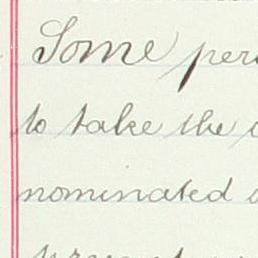 Some per
to take the
nominated